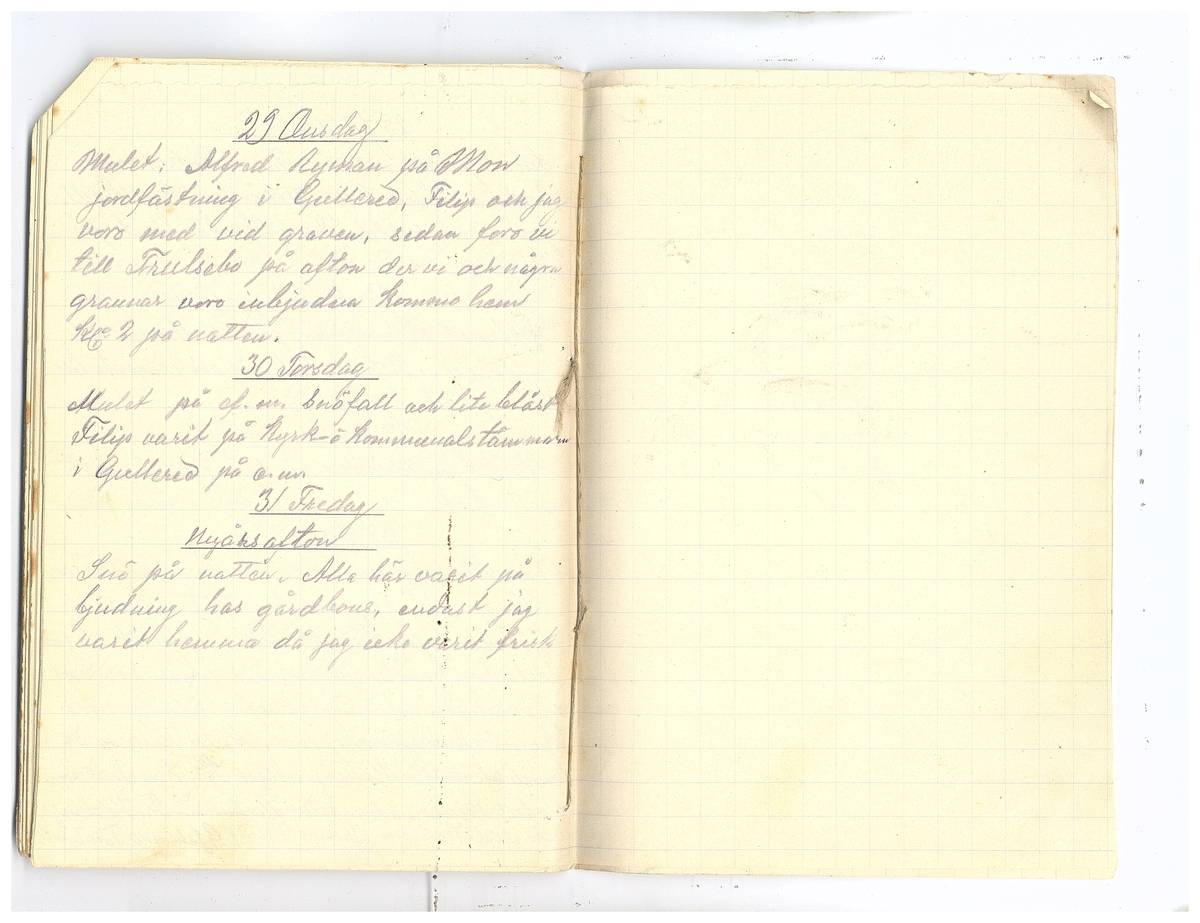 29 Onsdag
Mulet. Alfred Nyman på Mon
jordfästning i Gullered, Filip och jag
voro med vid graven, sedan foro vi
till Trulsebo på afton der vi och några
grannar voro inbjudna kommo hem
Kl. 2 på natten.
30 Torsdag
Mulet på ef.m. Snöfall och lite blåst
Filip varit på Kyrk- o kommunalstämman
i Gullered på e.m.
31 Fredag
Nyårsafton
Snö på natten. Alla här varit på
bjudning hos gårdbons, endast jag
varit hemma då jag icke varit frisk